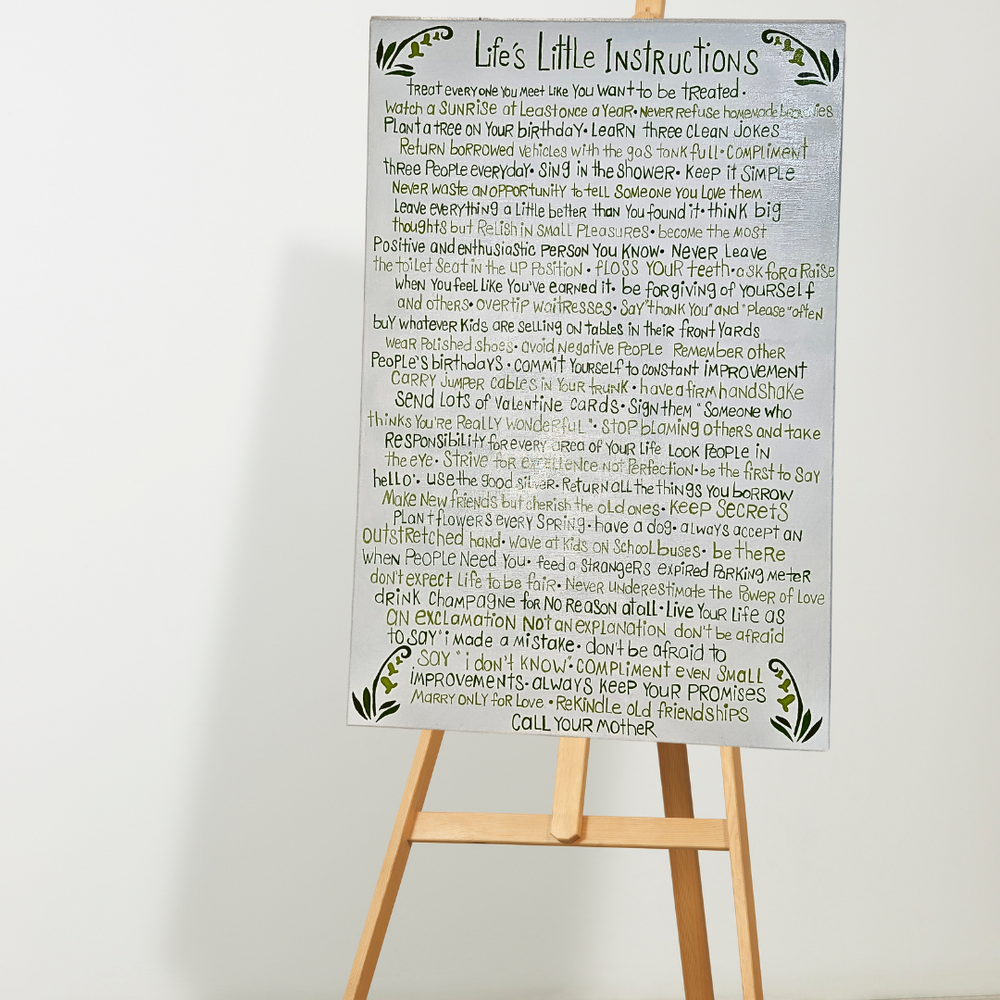 Life's Little Instructions
treat everyone you meet like you want to be treated.
watch a sunrise at least once a year • never refuse homemade brownies
Plant a tree on your birthday • Learn three clean jokes
Return borrowed vehicles with the gas tank full • Compliment
three people everyday • Sing in the shower • Keep it simple
Never waste an opportunity to tell someone you love them
Leave everything a little better than you found it • think big
thoughts but relish in small pleasures • become the most
Positive and enthusiastic person you know • Never leave
the toilet seat in the up position • floss your teeth • ask for a raise
when you feel like you've earned it • be forgiving of yourself
and others • overtip waitresses • Say "thank you" and "please" often
buy whatever kids are selling on tables in their front yards
wear polished shoes • avoid negative people Remember other
people's birthdays • commit yourself to constant improvement
carry jumper cables in your trunk • have a firm handshake
send lots of valentine cards • sign them "Someone who
thinks you're really wonderful" • stop blaming others and take
responsibility for every area of your life Look people in
the eye • Strive for excellence not perfection • be the first to say
hello • use the good silver • Return all the things you borrow
Make new friends but cherish the old ones • keep secrets
Plant flowers every spring • have a dog • always accept an
outstretched hand • wave at kids on school buses • be there
when people need you • feed a strangers expired parking meter
don't expect life to be fair • Never underestimate the power of love
drink champagne for no reason at all • Live your life as
an exclamation not an explanation don't be afraid
to say "i made a mistake • don't be afraid to
say "i don't know" • compliment even small
improvements • always keep your promises
Marry only for love • Rekindle old friendships
Call your mother